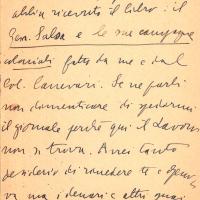 abbia ricevuto il libro: il
Gen. Salsa e le sue campagne
coloniali fatto da me e dal
Col. Canevari. Se ne parli
non dimenticare di spedirmi
il giornale perchè qui il Lavoro
non si trova. Avrei tanto
desiderio di rivedere te e Genova
ma i denari e altri guai